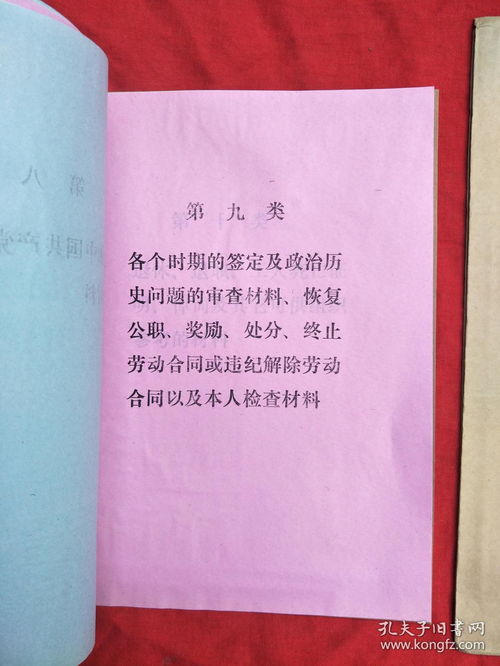 第 八
中国共产党
料
第 九 类
各个时期的签定及政治历
史问题的审查材料、恢复
公职、奖励、处分、终止
劳动合同或违纪解除劳动
合同以及本人检查材料
孔夫子旧书网
www.kongfz.com